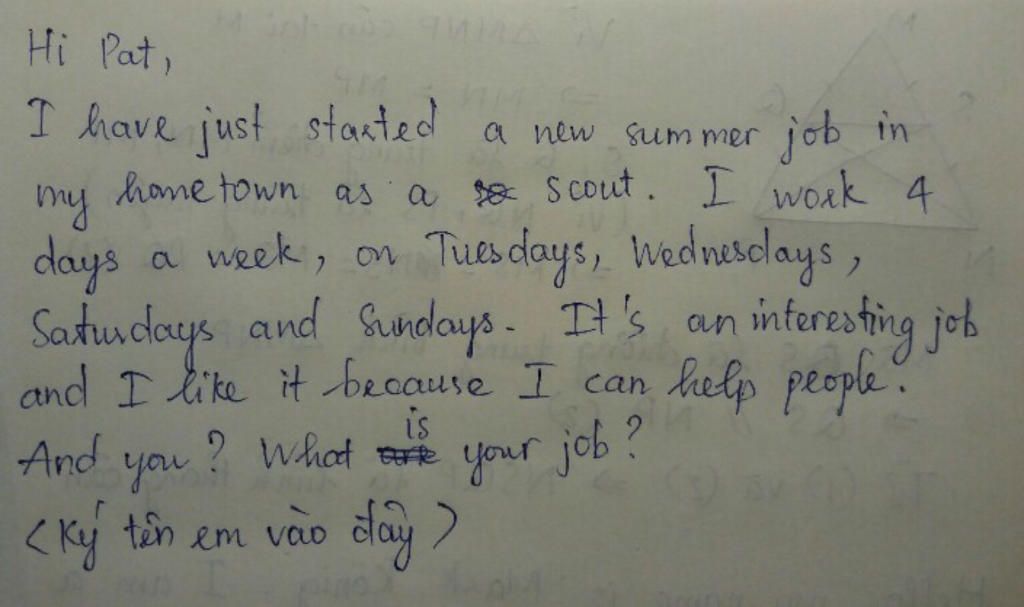 Hi Pat,
I have just started a new summer job in
my hometown as a scout. I work 4
days a week, on Tuesdays, Wednesdays,
Saturdays and Sundays. It's an interesting job
and I like it because I can help people.
And you? What is your job?
(Ký tên em vào đây)